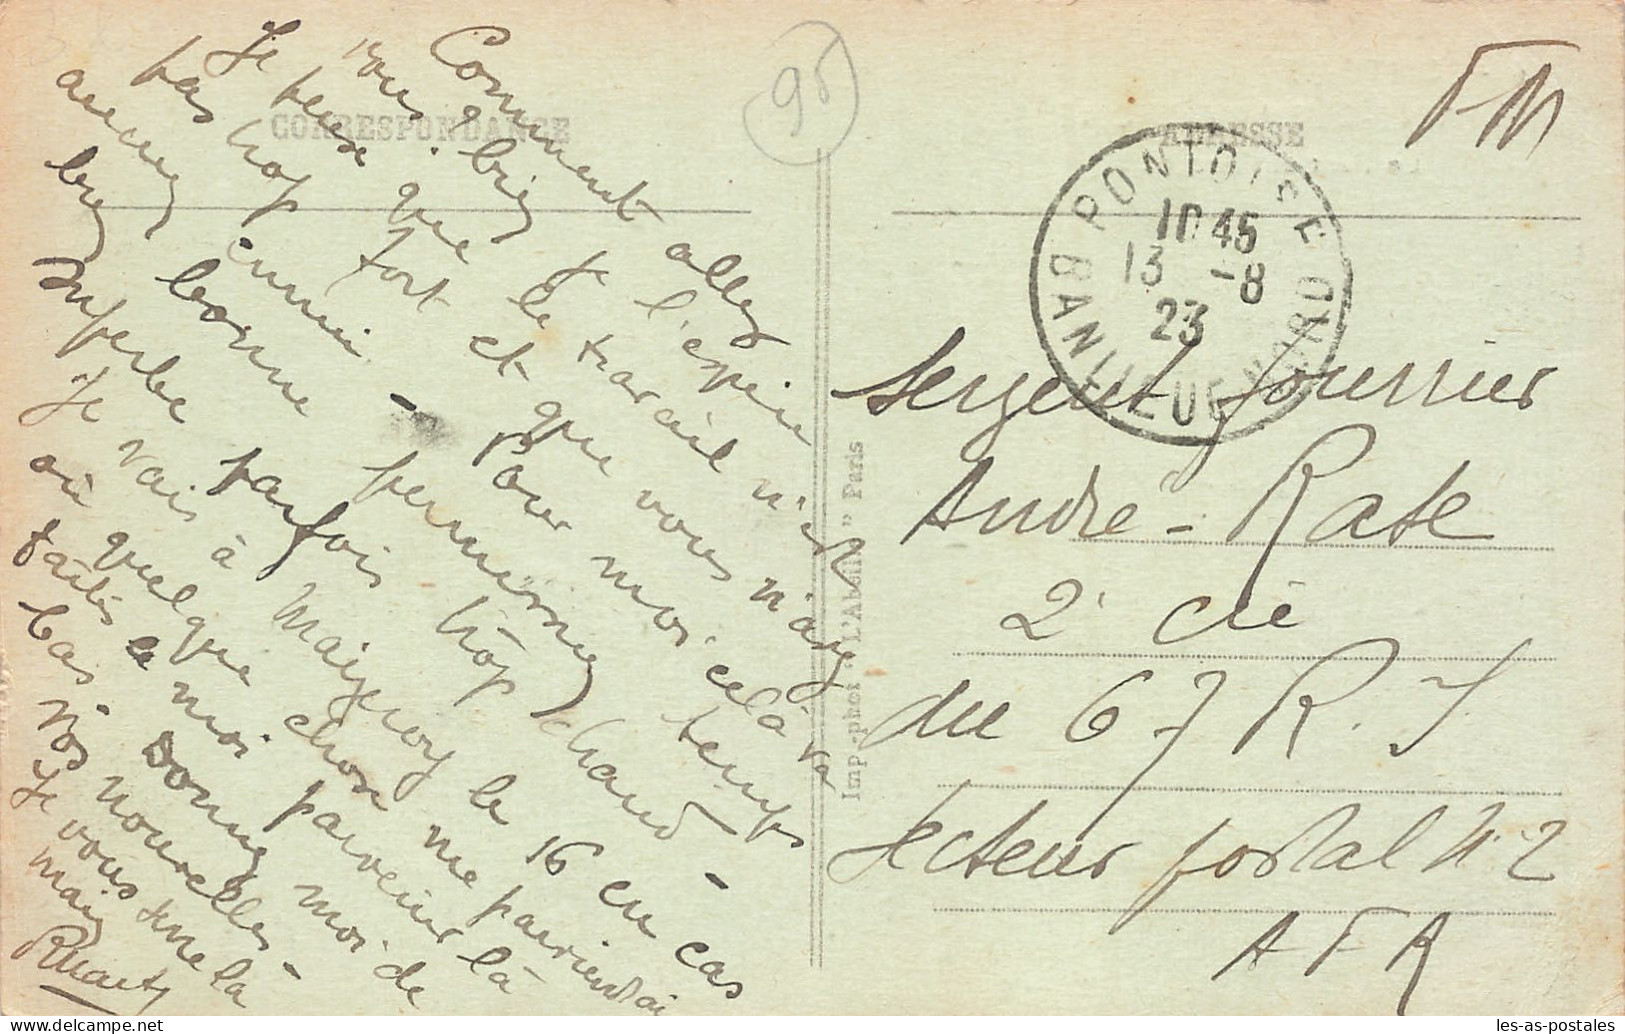 CORRESPONDANCE
Comment allez
vous ? bien je l'espère
Je pense que le travail n'est
pas trop fort et que vous n'avez
aucun ennui - Pour moi cela va
bien bonne permission temps
superbe parfois trop chaud -
Je vais à Maizeroy le 16 en cas
où quelque chose me parviendrai
faites le moi parvenir là
bas Donnez moi de
vos nouvelles -
Je vous serre la
main
95
ADRESSE
FM
PONTOISE
10 45
13 -8
23
BANLIEUE NORD
Sergent fourrier
André - Rate
2e Cie
du 67 R. I.
Secteur postal N° 2
A F R
Imp. phot. "L'Abeille" Paris
les-as-postales